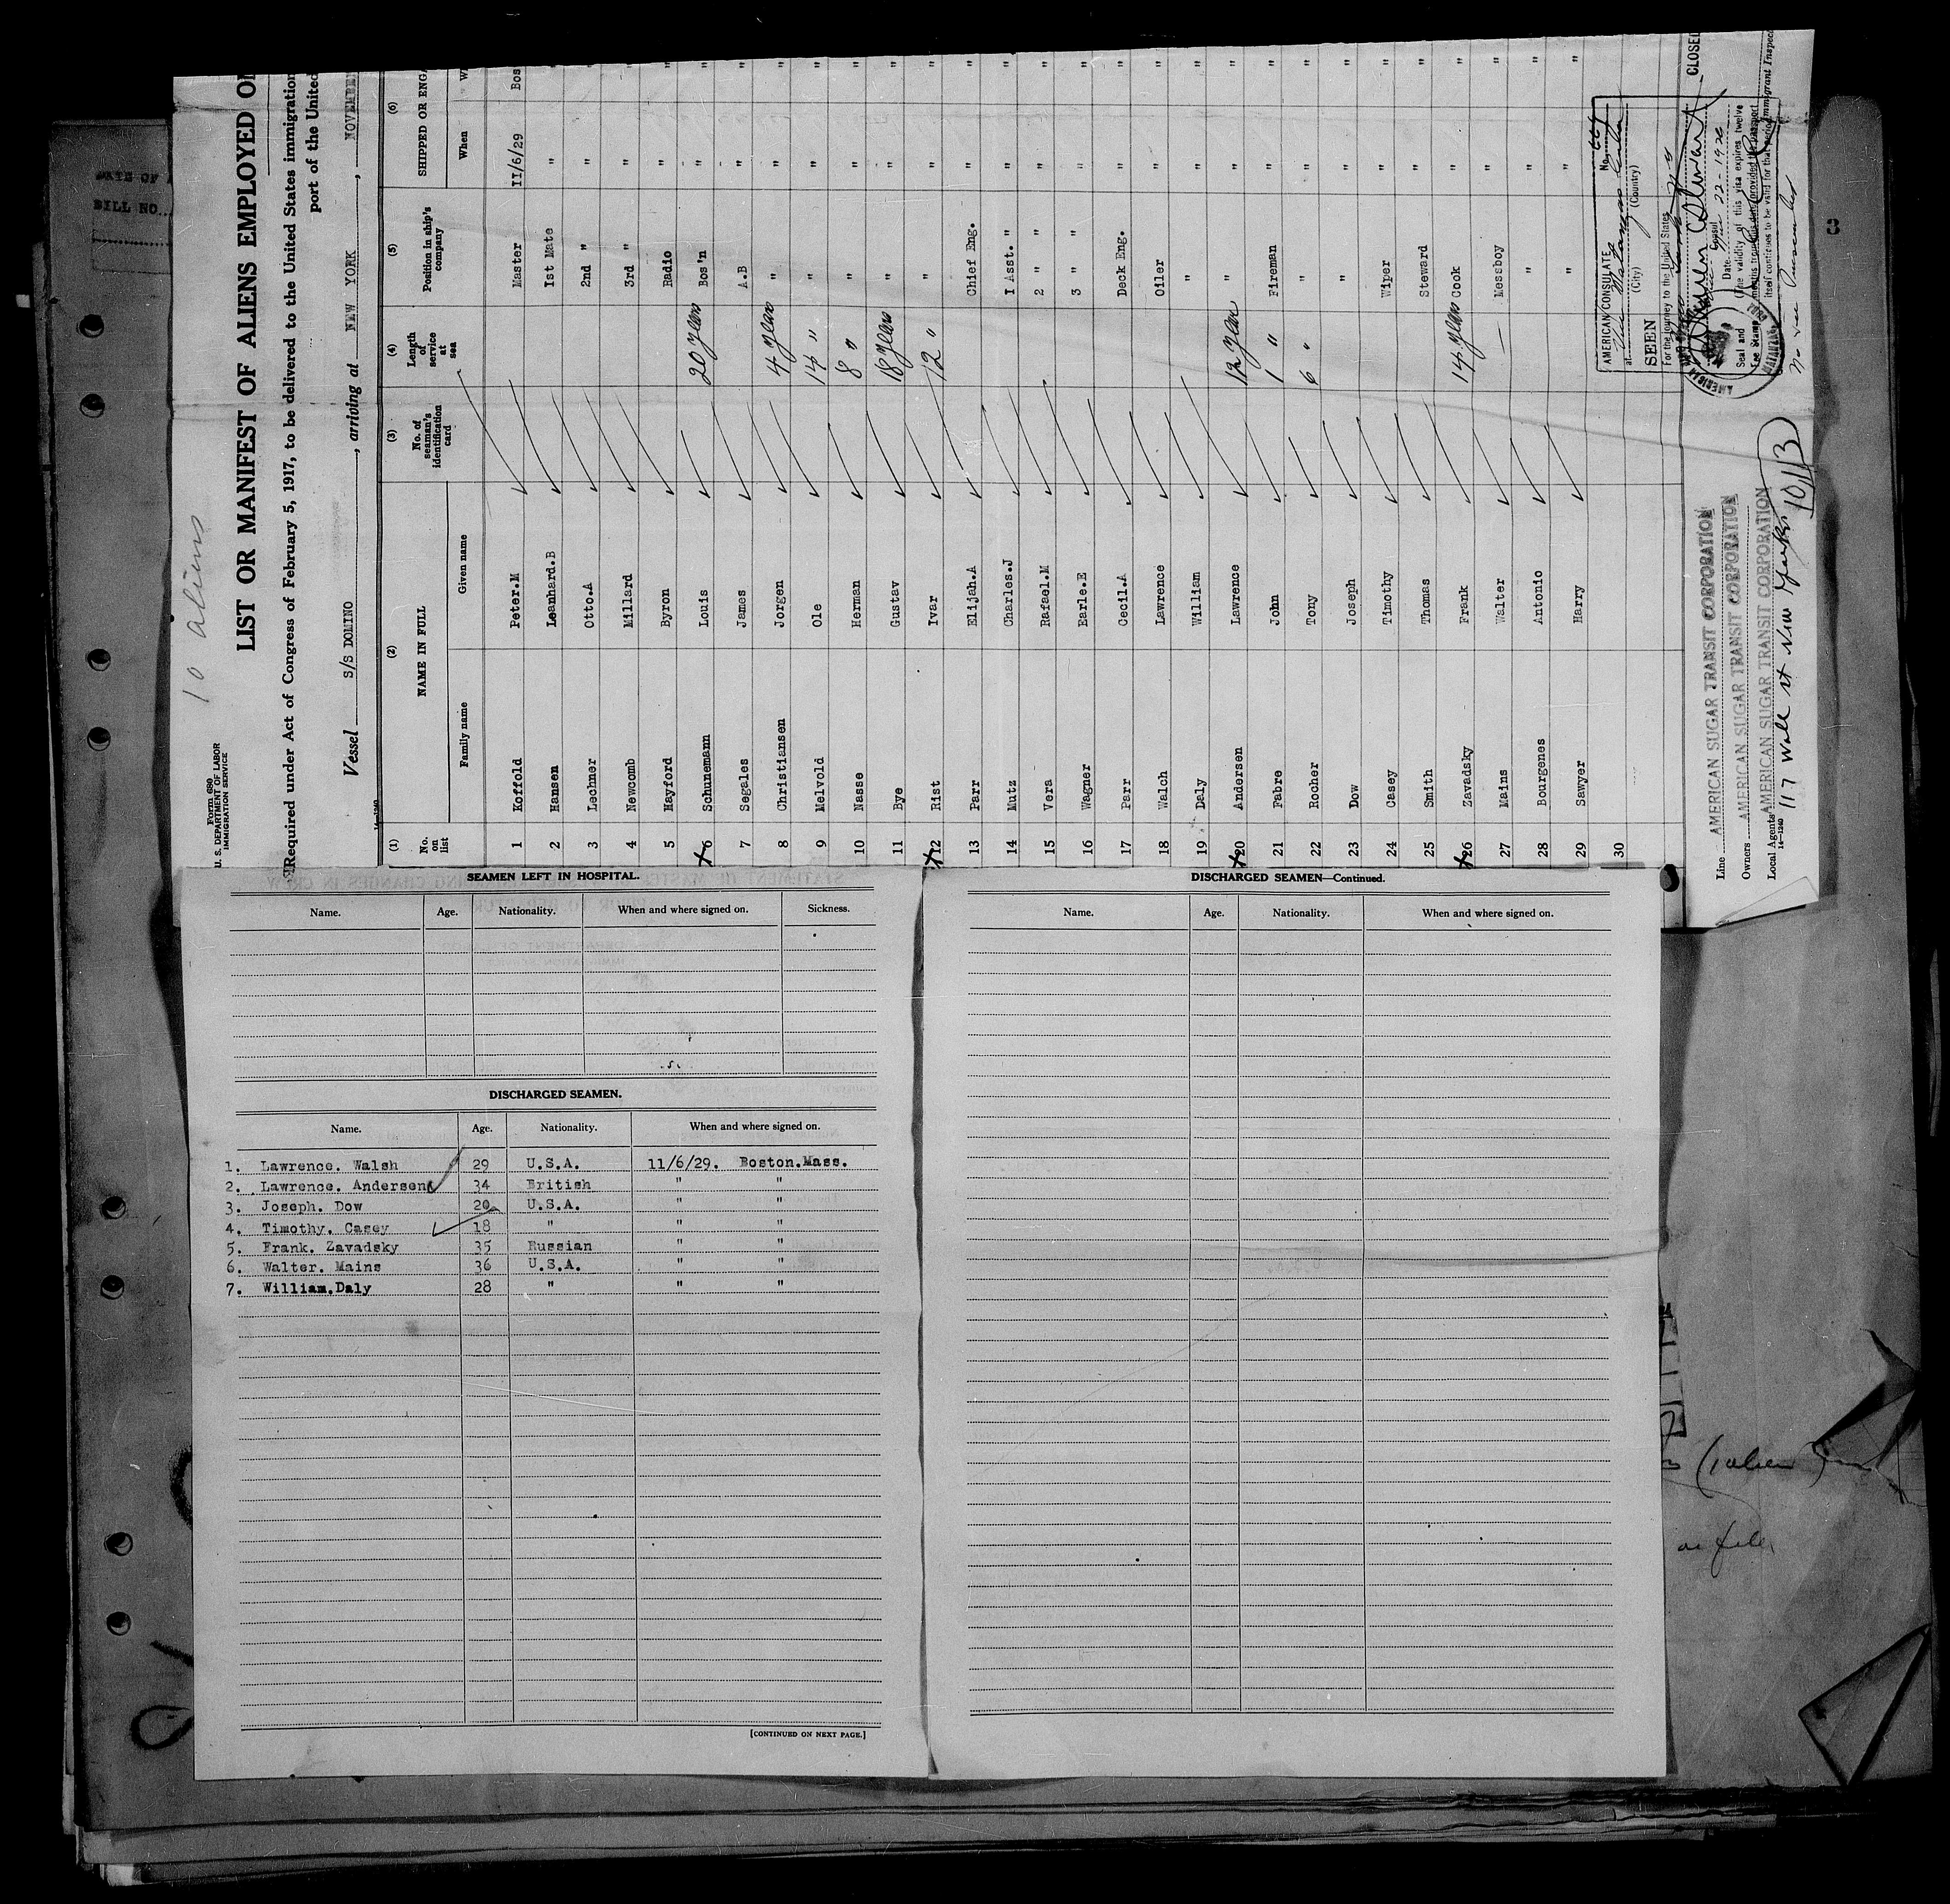 DATE OF
BILL NO.
3
10 aliens
Form 680
U. S. DEPARTMENT OF LABOR
IMMIGRATION SERVICE
LIST OR MANIFEST OF ALIENS EMPLOYED ON
Required under Act of Congress of February 5, 1917, to be delivered to the United States immigration
port of the United
Vessel S/S DOMINO, arriving at NEW YORK, NOVEMBER
(1) (2) (3) (4) (5) (6)
No. on list NAME IN FULL No. of seaman's identification card Length of service at sea Position in ship's company SHIPPED OR ENGA
Family name Given name When W
1 Koffold Peter.M Master 11/6/29 Bos
2 Hansen Leanhard.B 1st Mate " "
3 Lechner Otto.A 2nd " " "
4 Newcomb Millard 3rd " " "
5 Hayford Byron Radio " "
6 Schunemann Louis 20 years Bos'n " "
7 Segales James A.B " "
8 Christiansen Jorgen 4 years " " "
9 Melvold Ole 14 " " " "
10 Nasse Herman 8 " " " "
11 Bye Gustav 18 years " " "
12 Rist Ivar 12 " " " "
13 Parr Elijah.A Chief Eng. " "
14 Mutz Charles.J 1 Asst. " " "
15 Vera Rafael.M 2 " " " "
16 Wagner Earle.E 3 " " " "
17 Parr Cecil.A Deck Eng. " "
18 Walch Lawrence Oiler " "
19 Daly William " " "
20 Andersen Lawrence 12 years " " "
21 Fabre John 1 " Fireman " "
22 Rocher Tony 6 " " " "
23 Dow Joseph " " "
24 Casey Timothy Wiper " "
25 Smith Thomas Steward " "
26 Zavadsky Frank 14 years Cook " "
27 Mains Walter — Messboy " "
28 Bourgenes Antonio " " "
29 Sawyer Harry " " "
30
Line AMERICAN SUGAR TRANSIT CORPORATION
Owners AMERICAN SUGAR TRANSIT CORPORATION
Local Agents AMERICAN SUGAR TRANSIT CORPORATION
14—1240
117 Wall st New York
1013
AMERICAN CONSULATE No.
at Matanzas Cuba
(City) (Country)
SEEN
For the journey to the United States
Consul
Date
(The validity of this visa expires twelve
months from this date provided the passport
itself continues to be valid for that period
Seal and
Fee Stamp
AMERICAN
MATANZAS
CLOSED
Immigrant Inspec
SEAMEN LEFT IN HOSPITAL.
Name. Age. Nationality. When and where signed on. Sickness.
DISCHARGED SEAMEN.
Name. Age. Nationality. When and where signed on.
1. Lawrence. Walsh 29 U.S.A. 11/6/29. Boston.Mass.
2. Lawrence. Andersen 34 British " "
3. Joseph. Dow 20 U.S.A. " "
4. Timothy. Casey 18 " " "
5. Frank. Zavadsky 35 Russian " "
6. Walter. Mains 36 U.S.A. " "
7. William.Daly 28 " " "
[CONTINUED ON NEXT PAGE.]
DISCHARGED SEAMEN—Continued.
Name. Age. Nationality. When and where signed on.